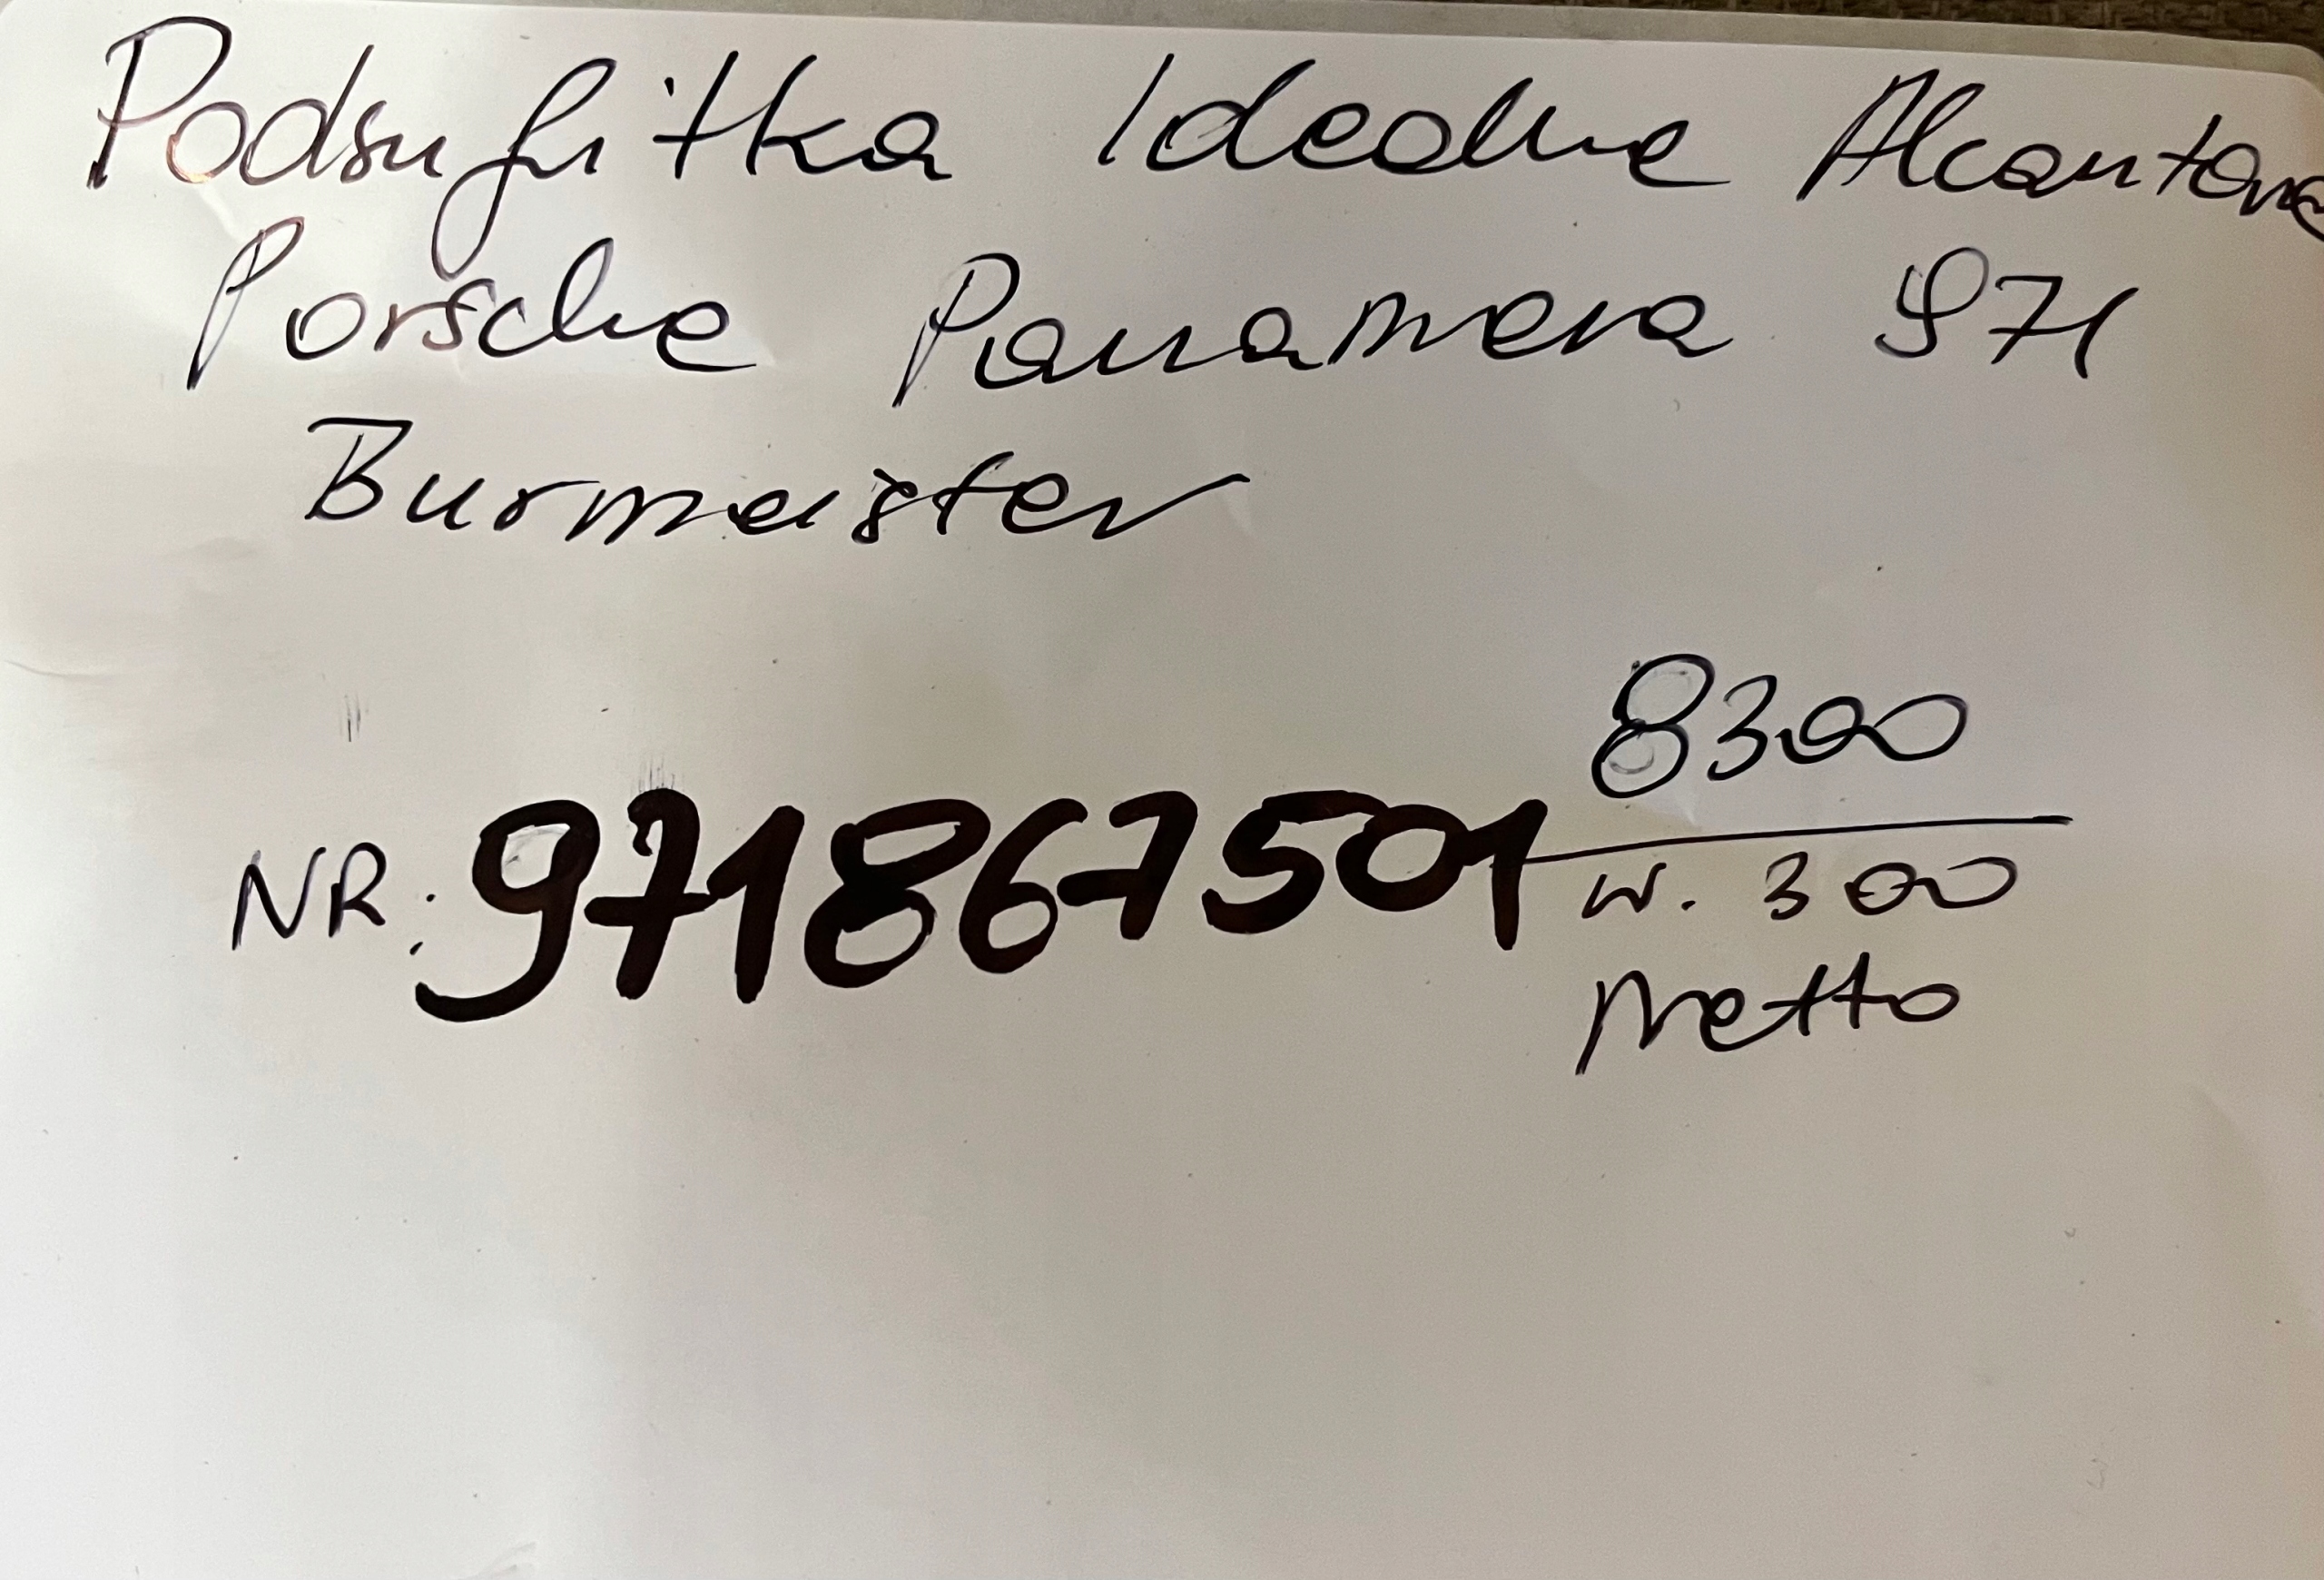 Podsufitka Idealna Alcantara
Porsche Panamera 971
Burmeister
8300
NR: 971867501
w. 300
Netto